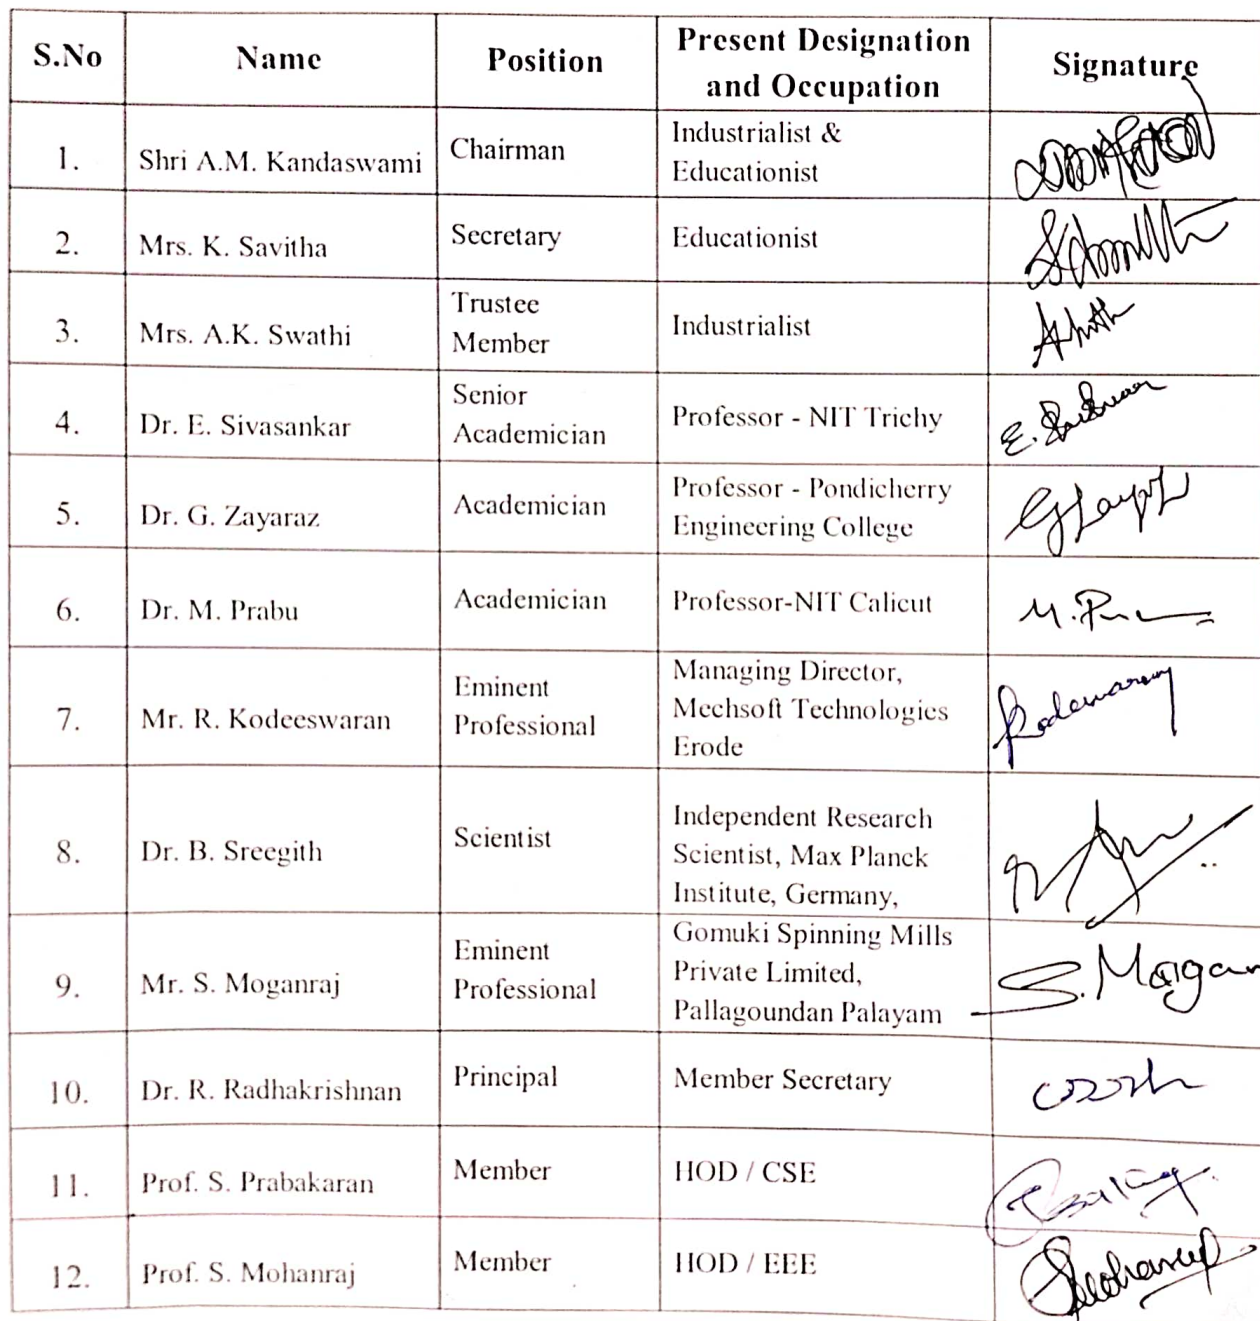 S.No Name Position Present Designation
and Occupation Signature
1. Shri A.M. Kandaswami Chairman Industrialist &
Educationist
2. Mrs. K. Savitha Secretary Educationist
3. Mrs. A.K. Swathi Trustee
Member Industrialist
4. Dr. E. Sivasankar Senior
Academician Professor - NIT Trichy
5. Dr. G. Zayaraz Academician Professor - Pondicherry
Engineering College
6. Dr. M. Prabu Academician Professor-NIT Calicut
7. Mr. R. Kodeeswaran Eminent
Professional Managing Director,
Mechsoft Technologies
Erode
8. Dr. B. Sreegith Scientist Independent Research
Scientist, Max Planck
Institute, Germany,
9. Mr. S. Moganraj Eminent
Professional Gomuki Spinning Mills
Private Limited,
Pallagoundan Palayam
10. Dr. R. Radhakrishnan Principal Member Secretary
11. Prof. S. Prabakaran Member HOD / CSE
12. Prof. S. Mohanraj Member HOD / EEE